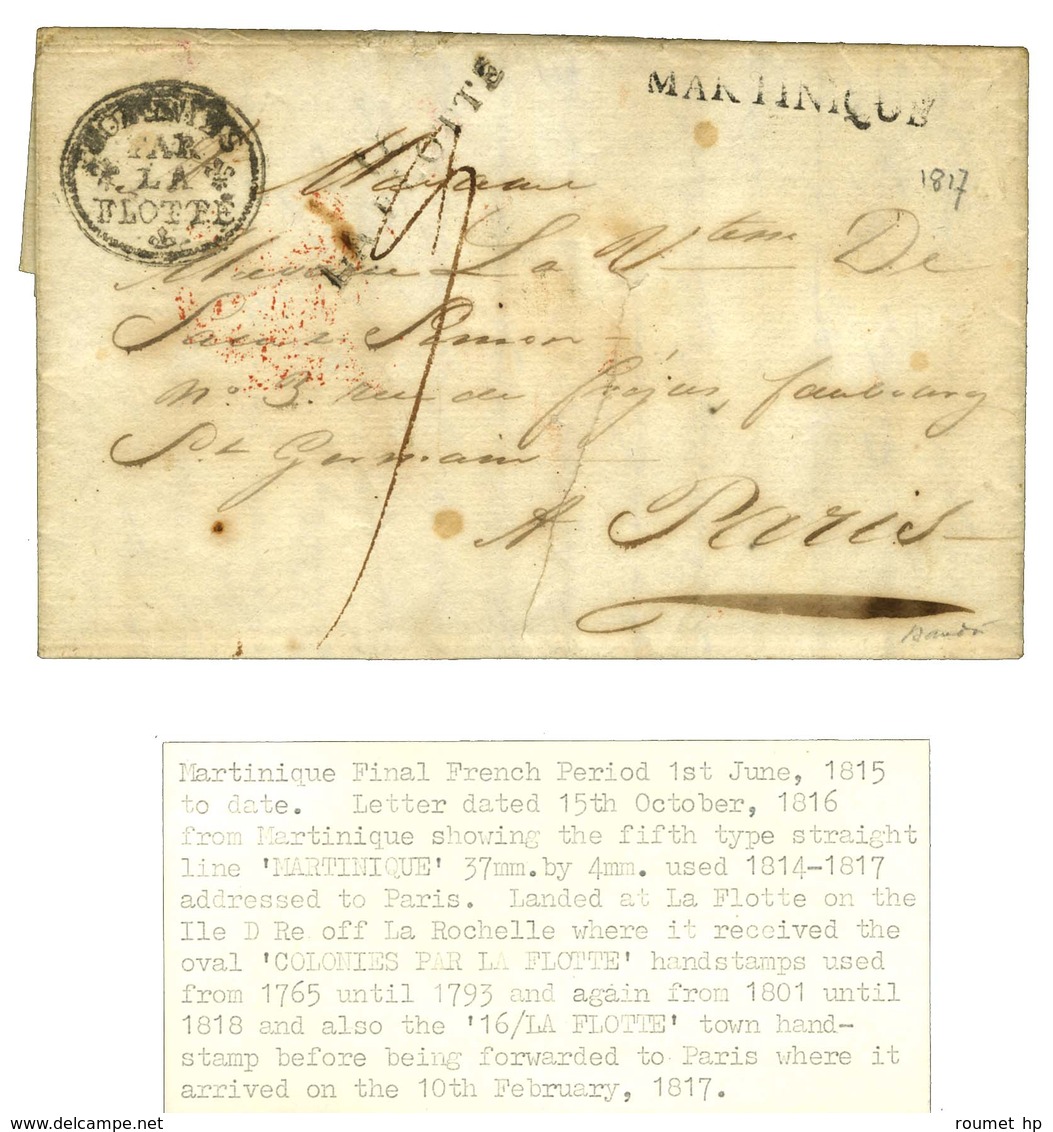 COLONIES
PAR
LA
FLOTTE
LA FLOTTE
MARTINIQUE
1817
Madame
Madame La Vtesse De
Saint Simon
No. 3. rue de faubourg
St Germain
A Paris
Martinique Final French Period 1st June, 1815
to date. Letter dated 15th October, 1816
from Martinique showing the fifth type straight
line 'MARTINIQUE' 37mm.by 4mm. used 1814-1817
addressed to Paris. Landed at La Flotte on the
Ile D Re off La Rochelle where it received the
oval 'COLONIES PAR LA FLOTTE' handstamps used
from 1765 until 1793 and again from 1801 until
1818 and also the '16/LA FLOTTE' town hand-
stamp before being forwarded to Paris where it
arrived on the 10th February, 1817.
www.delcampe.net
roumet hp